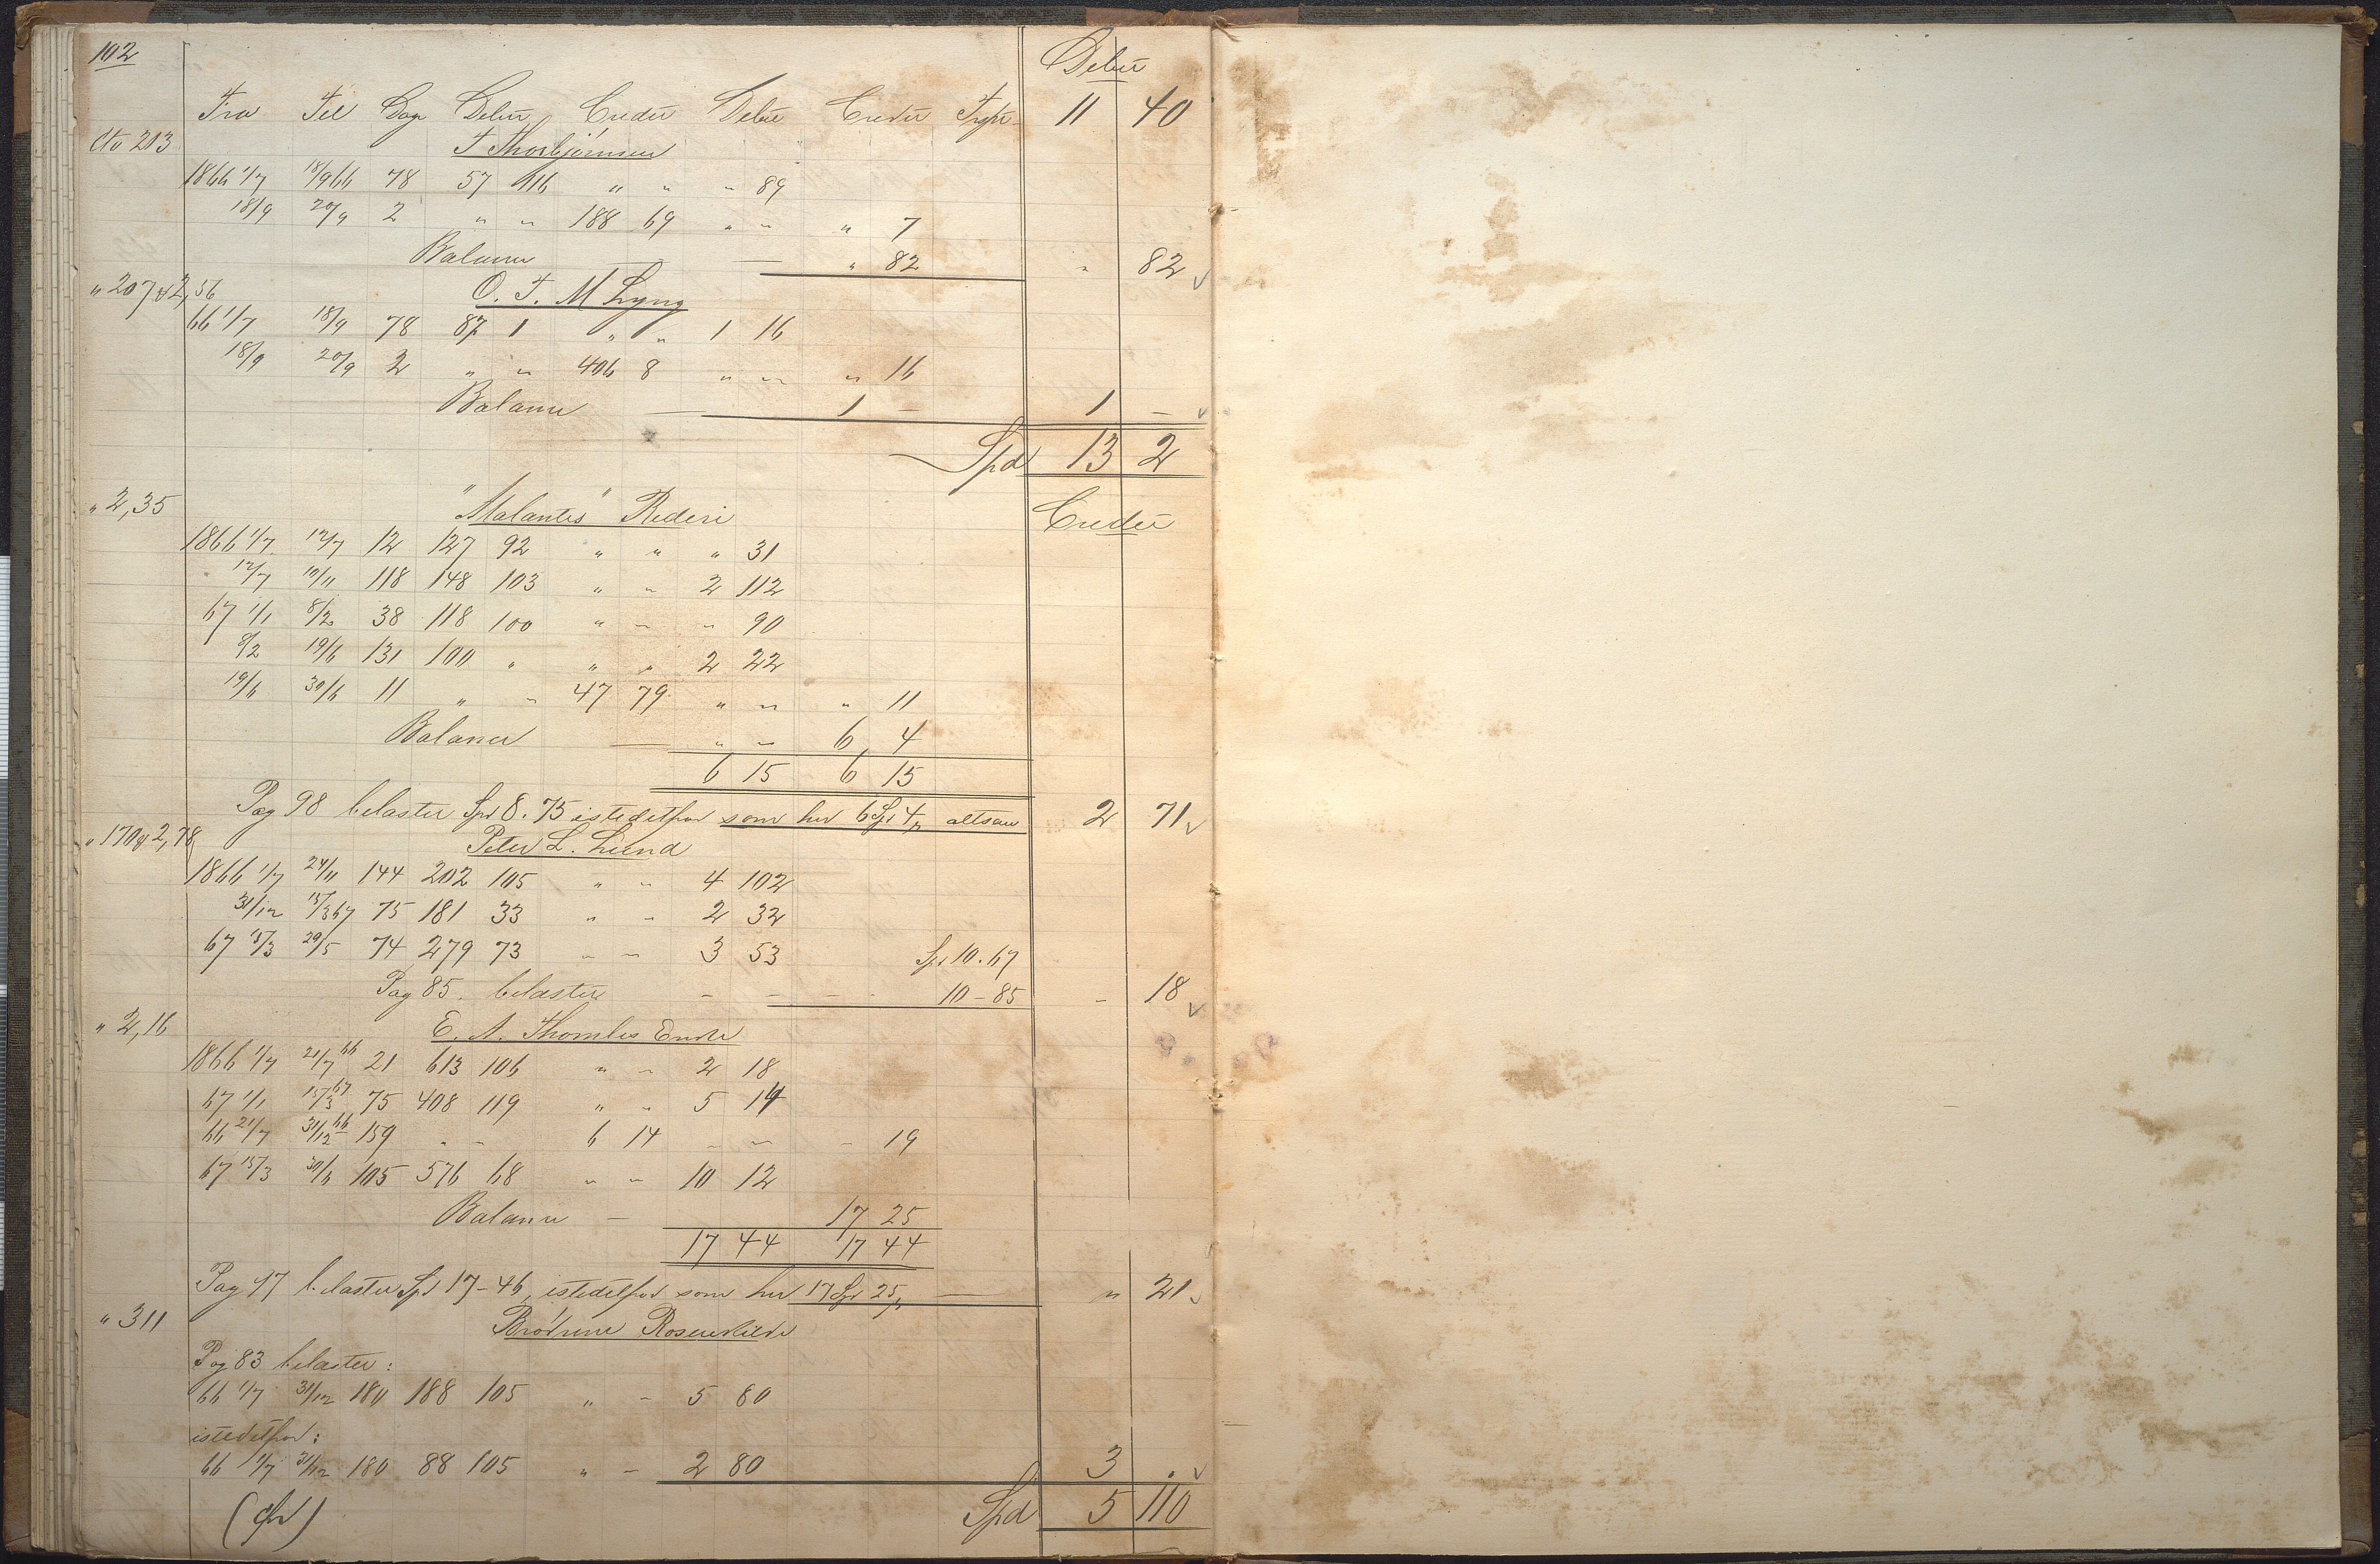 102 Debet
Fra Til Dage Debet Credit Debet Credit 11 40
Cto 213 T Thorbjørnsen
1866 1/7 18/9 66 78 57 116 " " " 89
18/9 20/9 2 " " 188 69 " " " 7
Balance — " 82 " 82
" 207 & 2,56 O. T. M Lyng
66 1/7 18/9 78 87 1 " " 1 16
18/9 20/9 2 " " 406 8 " " " 16
Balance — 1 – 1 –
Spd 13 2
" 2,35 "Atalantes" Rederi Credit
1866 1/7 12/7 12 127 92 " " " 31
12/7 10/11 118 148 103 " " 2 112
67 1/1 8/2 38 118 100 " " " 90
8/2 19/6 131 100 " " " 2 22
19/6 30/6 11 " " 47 79 " " " 11
Balance — " " 6 4
6 15 6 15
Pag 98 belastet Spd 8.75 istedetfor som her 6 Spd 4 altsaa 2 71
" 170 & 2,78 Peter L. Lund
1866 1/7 24/11 144 202 105 " " 4 102
31/12 15/3 67 75 181 33 " " 2 32
67 15/3 29/5 74 279 73 " " 3 53 Spd 10.67
Pag 85. belastet – – – – 10–85 – 18
" 2,16 E. A. Thomles Enke
1866 1/7 21/7 66 21 613 106 " " 2 18
67 1/1 15/3 67 75 408 119 " " 5 14
66 21/7 31/12 66 159 " " 6 14 " " " 19
67 15/3 30/6 105 576 68 " " 10 12
Balance – 17 25
17 44 17 44
Pag 97 belastet Spd 17–46, istedetfor som her 17 Spd 25 — " 21
" 311 Brødrene Rosenkilde
Pag 83 belastet:
66 1/7 31/12 180 188 105 " " 5 80
istedetfor:
66 1/7 31/12 180 88 105 " – 2 80 3 .
Spd 5 110